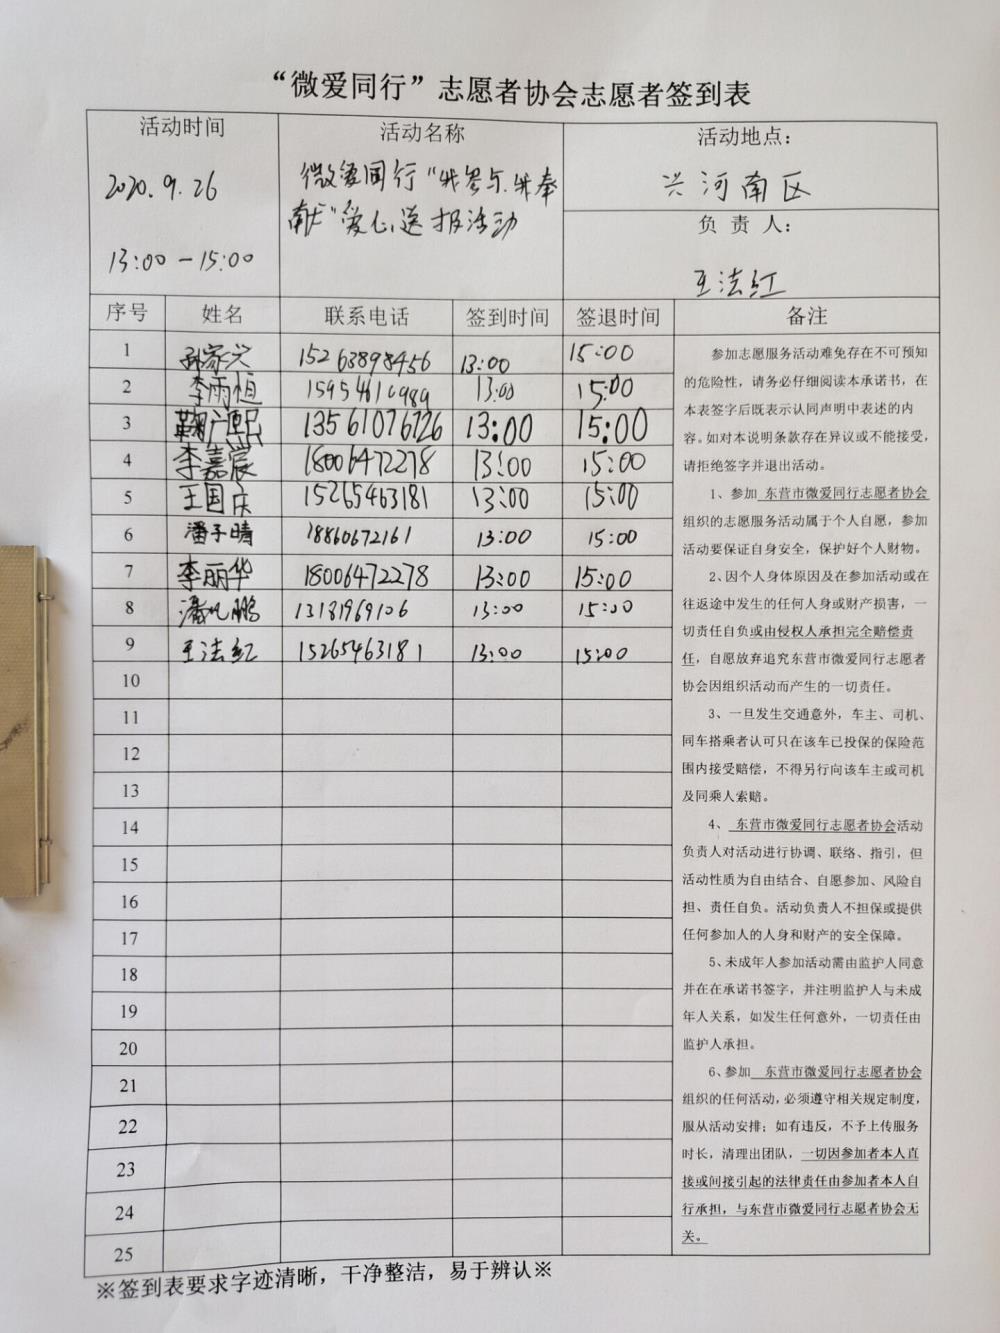 “微爱同行”志愿者协会志愿者签到表
活动时间
2020.9.26
13:00-15:00
活动名称
微爱同行“我参与.我奉
献”爱心送报活动
活动地点：
兴河南区
负 责 人：
王法红
序号 姓名 联系电话 签到时间 签退时间 备注
1 孙家兴 15263898456 13:00 15:00
2 李雨恒 15954610989 13:00 15:00
3 鞠广熙 13561076726 13:00 15:00
4 李嘉宸 18006472278 13:00 15:00
5 王国庆 15265463181 13:00 15:00
6 潘子晴 18860672161 13:00 15:00
7 李丽华 18006472278 13:00 15:00
8 潘 鹏 13:00 15:00
9 王法红 15265463181 13:00 15:00
10
11
12
13
14
15
16
17
18
19
20
21
22
23
24
25
参加志愿服务活动难免存在不可预知
的危险性，请务必仔细阅读本承诺书，在
本表签字后既表示认同声明中表述的内
容。如对本说明条款存在异议或不能接受，
请拒绝签字并退出活动。
1、参加 东营市微爱同行志愿者协会
组织的志愿服务活动属于个人自愿，参加
活动要保证自身安全，保护好个人财物。
2、因个人身体原因及在参加活动或在
往返途中发生的任何人身或财产损害，一
切责任自负或由侵权人承担完全赔偿责
任，自愿放弃追究东营市微爱同行志愿者
协会因组织活动而产生的一切责任。
3、一旦发生交通意外，车主、司机、
同车搭乘者认可只在该车已投保的保险范
围内接受赔偿，不得另行向该车主或司机
及同乘人索赔。
4、 东营市微爱同行志愿者协会活动
负责人对活动进行协调、联络、指引，但
活动性质为自由结合、自愿参加、风险自
担、责任自负。活动负责人不担保或提供
任何参加人的人身和财产的安全保障。
5、未成年人参加活动需由监护人同意
并在在承诺书签字，并注明监护人与未成
年人关系，如发生任何意外，一切责任由
监护人承担。
6、参加 东营市微爱同行志愿者协会
组织的任何活动，必须遵守相关规定制度，
服从活动安排；如有违反，不予上传服务
时长，清理出团队，一切因参加者本人直
接或间接引起的法律责任由参加者本人自
行承担，与东营市微爱同行志愿者协会无
关。
※签到表要求字迹清晰，干净整洁，易于辨认※